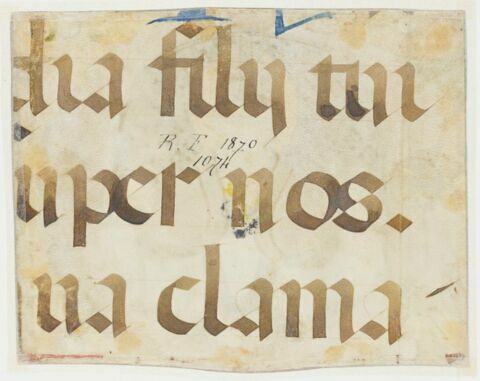 dia filij tui
R.F 1870
1074
uper nos.
ua clama